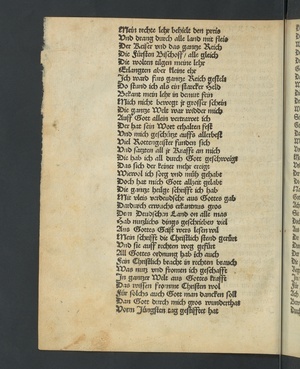 Mein rechte lehr behielt den preis
Vnd drang durch alle land mit fleis
Der Keiser vnd das gantze Reich
Die Fürsten Bischoff alle gleich
Die wolten tilgen meine lehr
Erlangten aber kleine ehr
Ich ward fürs gantze Reich gestelt
Do stund ich als ein starcker Held
Bekant mein lehr in demut fein
Mich nicht bewegt jr grosser schein
Die gantze Welt war widder mich
Auff Gott allein vertrawet ich
Der hat sein Wort erhalten fest
Vnd mich geschütz auffs allerbest
Viel Rottengeister funden sich
Vnd satzten all jr Krafft an mich
Die hab ich all durch Gott geschweigt
Das sich der keiner mehr ereigt
Wiewol ich sorg vnd müh gehabt
Doch hat mich Gott allzeit gelabt
Die gantze heilge schrifft ich hab
Mit vleis verdeudscht aus Gottes gab
Dardurch erwachs erkantnus gros
Dem Deudschen Land on alle mas
Hab nützlichs dings geschrieben viel
Aus Gottes Geist wers lesen wil
Mein schrifft die Christlich stend gerürt
Vnd sie auff rechten weg gefürt
All Gottes ordnung hab ich auch
Fein Christlich bracht in rechten brauch
Was nutz vnd fromen ich geschafft
In gantzer Welt aus Gottes krafft
Das wissen fromme Christen wol
Für solchs auch Gott man dancken soll
Han Gott durch mich gros wunderthat
Vorm Jüngsten tag gestifftet hat